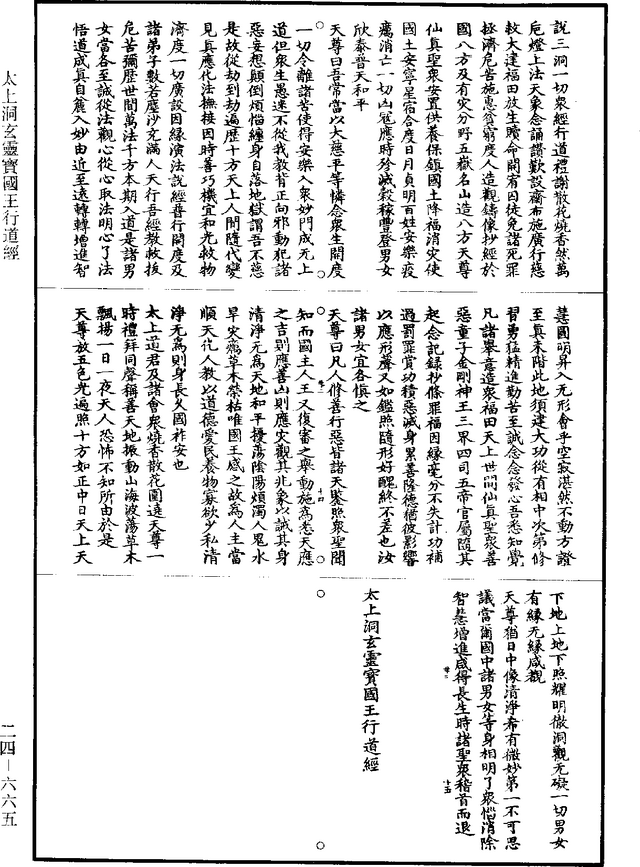 說三洞一切衆經行道禮謝散花燒香然萬
巵燈上法天象念誦讚歎設齋布施廣行慈
救大建福田放生贖命開宥囚徒免諸死罪
拯濟危苦施惠貧窮度人造觀鑄像抄經於
國八方及有灾分野五嶽名山造八方天尊
仙真聖衆安置供養保鎮國土降福消灾使
國土安寧星宿合度日月貞明百姓安樂疫
癘消亡一切凶寃應時殄滅穀稼豐登男女
欣泰普天和平
天尊曰吾常當以大慈平等憐念衆生開度
一切令離諸苦使得安樂入衆妙門成无上
道但衆生愚迷不從我教背正向邪動犯諸
惡妄想顛倒煩惱纏身自落地獄謂吾不慈
是故從劫到劫遍歷十方天上人間隨代變
見真應化法撫接因時善巧機宜和光救物
濟度一切廣設因緣演法說經普行開度及
諸弟子數若塵沙充滿人天行吾經教救拔
危苦彌歷世間萬法千方本期入道是諸男
女當各至誠從法觀心從心取法明心了法
悟道成真自麁入妙由近至遠轉轉增進智
慧圓明昇入无形會乎空寂湛然不動方證
至真未階此地須建大功從有相中次第修
習勇猛精進勤苦至誠念念發心吾悉知覺
凡諸舉意造衆福田天上世間仙真聖衆善
惡童子金剛神王三界四司五帝官屬隨其
起念記録抄條罪福因緣毫分不失計功補
過罰罪賞功積惡滅身累善隆德猶彼影響
以應形聲又如鑑照隨形好醜終不差也汝
諸男女宜各慎之
天尊曰凡人修善行惡皆諸天鑒照衆聖聞
知而國主人王又復審之舉動施爲悉天應
之吉則應善凶則應灾觀其兆象以誡其身
清淨无爲天地和平擾蕩陰陽煩濁人鬼水
旱灾癘草木榮枯唯國王感之故爲人主當
順天化人教以道德愛民養物寡欲少私清
淨无爲則身長乂國祚安也
太上道君及諸會衆燒香散花圍遶天尊一
時禮拜同聲稱善天地振動山海波蕩草木
飄揚一日一夜天人恐怖不知所由於是
天尊放五色光遍照十方如正中日天上天
下地上地下照耀明徹洞觀无礙一切男女
有緣无緣咸覩
天尊猶日中像清淨希有微妙第一不可思
議當爾國中諸男女等身相明了衆惱消除
智慧增進咸得長生時諸聖衆稽首而退
太上洞玄靈寶國王行道經
太上洞玄靈寶國王行道經
二四－六六五